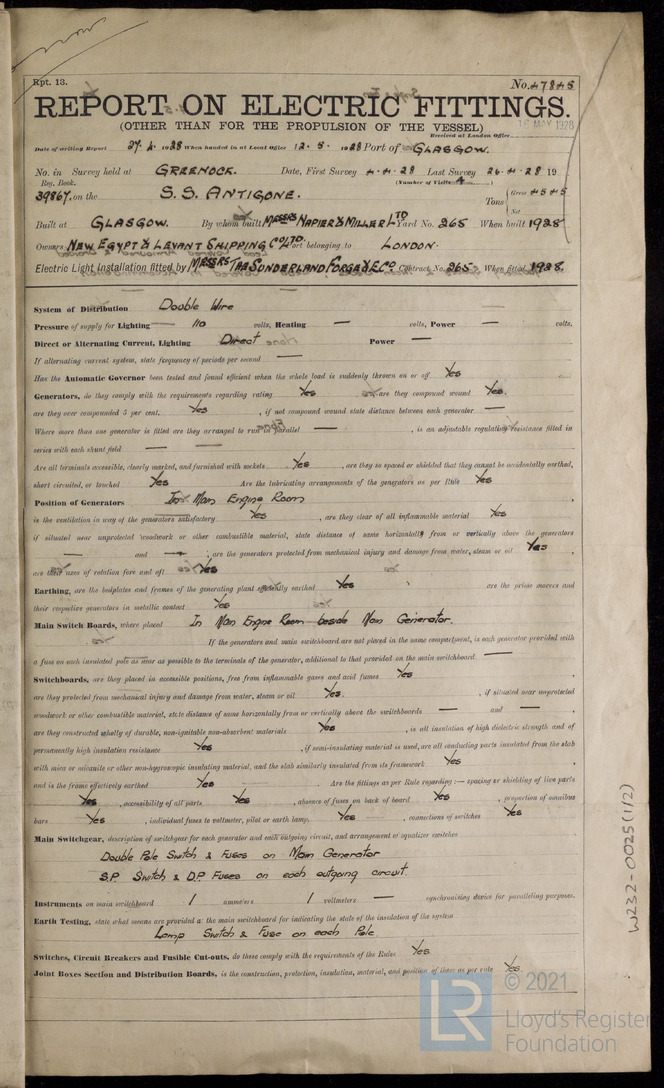 Rpt. 13.
No. 47845
REPORT ON ELECTRIC FITTINGS.
(OTHER THAN FOR THE PROPULSION OF THE VESSEL)
Received at London Office 16 MAY 1928
Date of writing Report 27. 4. 1928 When handed in at Local Office 12. 5. 1928 Port of GLASGOW.
No. in Survey held at GREENOCK. Date, First Survey 4.4.28 Last Survey 26.4.28 19
Reg. Book. (Number of Visits 4)
39867. on the S.S. ANTIGONE. Tons { Gross 4545
Net
Built at GLASGOW. By whom built MESSRS NAPIER & MILLER LTD Yard No. 265 When built 1928
Owners NEW EGYPT & LEVANT SHIPPING CO LTD. Port belonging to LONDON.
Electric Light Installation fitted by MESSRS THE SUNDERLAND FORGE & E. CO Contract No. 265 When fitted 1928.
System of Distribution Double Wire
Pressure of supply for Lighting 110 volts, Heating — volts, Power — volts.
Direct or Alternating Current, Lighting Direct Power —
If alternating current system, state frequency of periods per second —
Has the Automatic Governor been tested and found efficient when the whole load is suddenly thrown on or off Yes
Generators, do they comply with the requirements regarding rating Yes are they compound wound Yes.
are they over compounded 5 per cent. Yes, if not compound wound state distance between each generator —
Where more than one generator is fitted are they arranged to run in parallel —, is an adjustable regulating resistance fitted in
series with each shunt field —
Are all terminals accessible, clearly marked, and furnished with sockets Yes, are they so spaced or shielded that they cannot be accidentally earthed,
short circuited, or touched Yes Are the lubricating arrangements of the generators as per Rule Yes
Position of Generators In Main Engine Room,
is the ventilation in way of the generators satisfactory Yes, are they clear of all inflammable material Yes
if situated near unprotected woodwork or other combustible material, state distance of same horizontally from or vertically above the generators
— and —, are the generators protected from mechanical injury and damage from water, steam or oil Yes,
are their axes of rotation fore and aft Yes
Earthing, are the bedplates and frames of the generating plant efficiently earthed Yes are the prime movers and
their respective generators in metallic contact Yes
Main Switch Boards, where placed In Main Engine Room beside Main Generator.
If the generators and main switchboard are not placed in the same compartment, is each generator provided with
a fuse on each insulated pole as near as possible to the terminals of the generator, additional to that provided on the main switchboard —
Switchboards, are they placed in accessible positions, free from inflammable gases and acid fumes Yes,
are they protected from mechanical injury and damage from water, steam or oil Yes., if situated near unprotected
woodwork or other combustible material, state distance of same horizontally from or vertically above the switchboards — and —,
are they constructed wholly of durable, non-ignitable non-absorbent materials Yes, is all insulation of high dielectric strength and of
permanently high insulation resistance Yes, if semi-insulating material is used, are all conducting parts insulated from the slab
with mica or micanite or other non-hygroscopic insulating material, and the slab similarly insulated from its framework Yes,
and is the frame effectively earthed Yes Are the fittings as per Rule regarding:— spacing or shielding of live parts
Yes, accessibility of all parts Yes, absence of fuses on back of board Yes, proportion of omnibus
bars Yes, individual fuses to voltmeter, pilot or earth lamp. Yes, connections of switches Yes
Main Switchgear, description of switchgear for each generator and each outgoing circuit, and arrangement of equalizer switches
Double Pole Switch & Fuses on Main Generator
S.P. Switch & D.P. Fuses on each outgoing circuit.
Instruments on main switchboard 1 ammeters 1 voltmeters — synchronising device for paralleling purposes.
Earth Testing, state what means are provided at the main switchboard for indicating the state of the insulation of the system
Lamp Switch & Fuse on each Pole
Switches, Circuit Breakers and Fusible Cut-outs, do these comply with the requirements of the Rules Yes.
Joint Boxes Section and Distribution Boards, is the construction, protection, insulation, material, and position of these as per rule Yes.
W232-0025(1/2)
LR © 2021
Lloyd's Register
Foundation